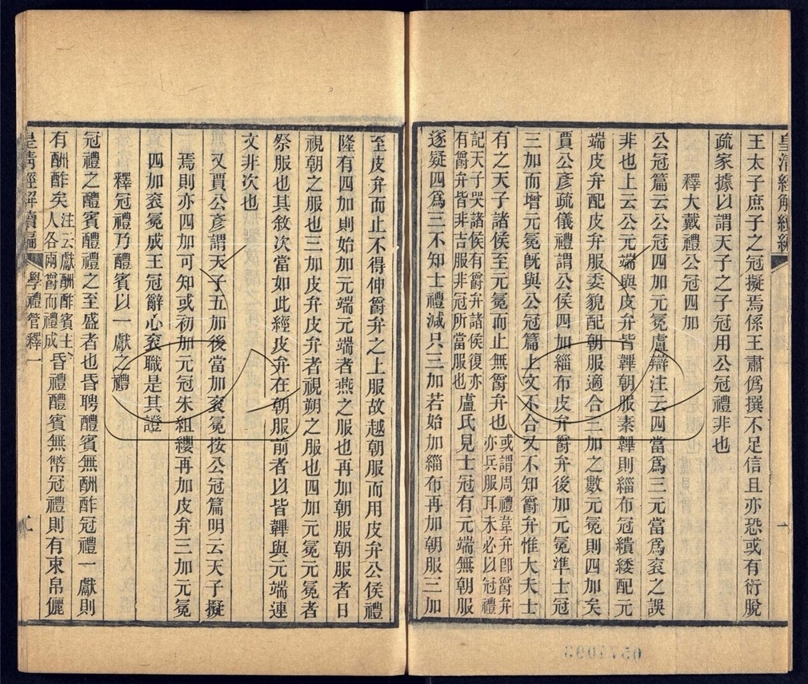 皇清經解續編
王太子庶子之冠擬焉係王肅僞撰不足信且亦恐或有衍脫
疏家據以謂天子之子冠用公冠禮非也
釋大戴禮公冠四加
公冠篇云公冠四加元冕盧辯注云四當爲三元當爲袞之誤
非也上云公元端與皮弁皆韠朝服素韠則緇布冠繢緌配元
端皮弁配皮弁服委貌配朝服適合三加之數元冕則四加矣
賈公彥疏儀禮謂公侯四加緇布皮弁爵弁後加元冕準士冠
三加而增元冕旣與公冠篇上文不合又不知爵弁惟大夫士
有之天子諸侯至元冕而止無爵弁也
或謂周禮韋弁卽爵弁
亦兵服耳未必以冠禮
記天子哭諸侯有爵弁諸侯復亦
有爵弁皆非吉服非冠所當服也
盧氏見士冠有元端無朝服
逐疑四爲三不知士禮減只三加若始加緇布再加朝服三加
至皮弁而止不得伸爵弁之上服故越朝服而用皮弁公侯禮
隆有四加則始加元端元端者燕之服也再加朝服朝服者日
視朝之服也三加皮弁皮弁者視朔之服也四加元冕元冕者
祭服也其敘次當如此經皮弁在朝服前者以皆韠與元端連
文非次也
又賈公彥謂天子五加後當加袞冕按公冠篇明云天子擬
焉則亦四加可知或初加元冠朱組纓再加皮弁三加元冕
四加袞冕成王冠辭心袞職是其證
釋冠禮乃醴賓以一獻之禮
冠禮之醴賓醴禮之至盛者也昏聘醴賓無酬酢冠禮一獻則
有酬酢矣
注云獻酬酢賓主
人各兩爵而禮成
昏禮醴賓無幣冠禮則有束帛儷
皇清經解續編
學禮管釋一
657093